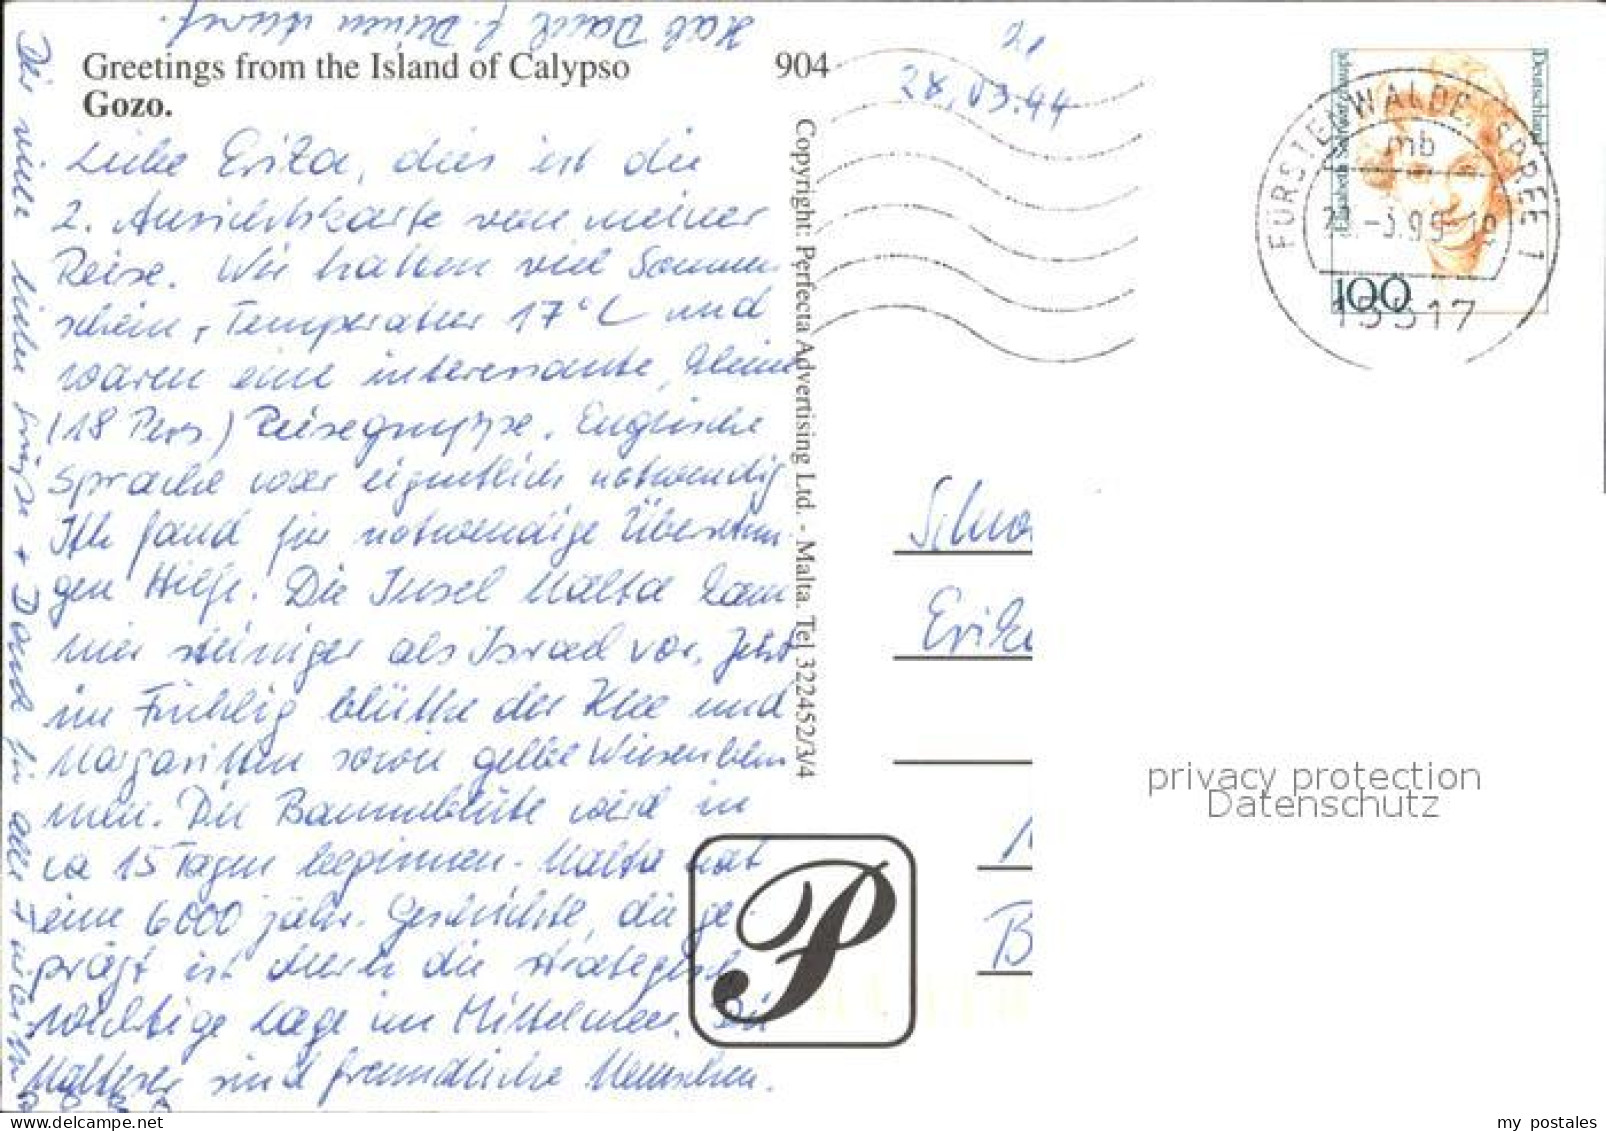 Greetings from the Island of Calypso
Gozo.
904
21
28.03.99
Liebe Erika, dies ist die
2. Ansichtskarte von meiner
Reise. Wir hatten viel Sonnen
schein, Temperatur 17°C und
waren eine interessante, kleine
(18 Pers.) Reisegruppe. Englische
Sprache war eigentlich notwendig
Ich fand für notwendige Übersetzun-
gen Hilfe. Die Insel Malta kam
mir steiniger als Israel vor. Jetzt
im Frühlig blühte der Klee und
Margaritten sowie gelbe Wiesenblu
men. Die Baumblüte wird in
ca 15 Tagen beginnen. Malta hat
eine 6000 jähr. Geschichte, die ge-
prägt ist durch die strategisch
wichtige Lage im Mittelmeer. Die
Malteser sind freundliche Menschen.
Dir viele liebe Grüße + Dank für alle
Hab Dank f. Deinen Anruf.
Copyright: Perfecta Advertising Ltd. - Malta. Tel 322452/3/4
P
Deutschland
Elisabeth Schwarzhaupt
100
FÜRSTENWALDE, SPREE 1
mb
15517
Erika
B
privacy protection
Datenschutz
my postales